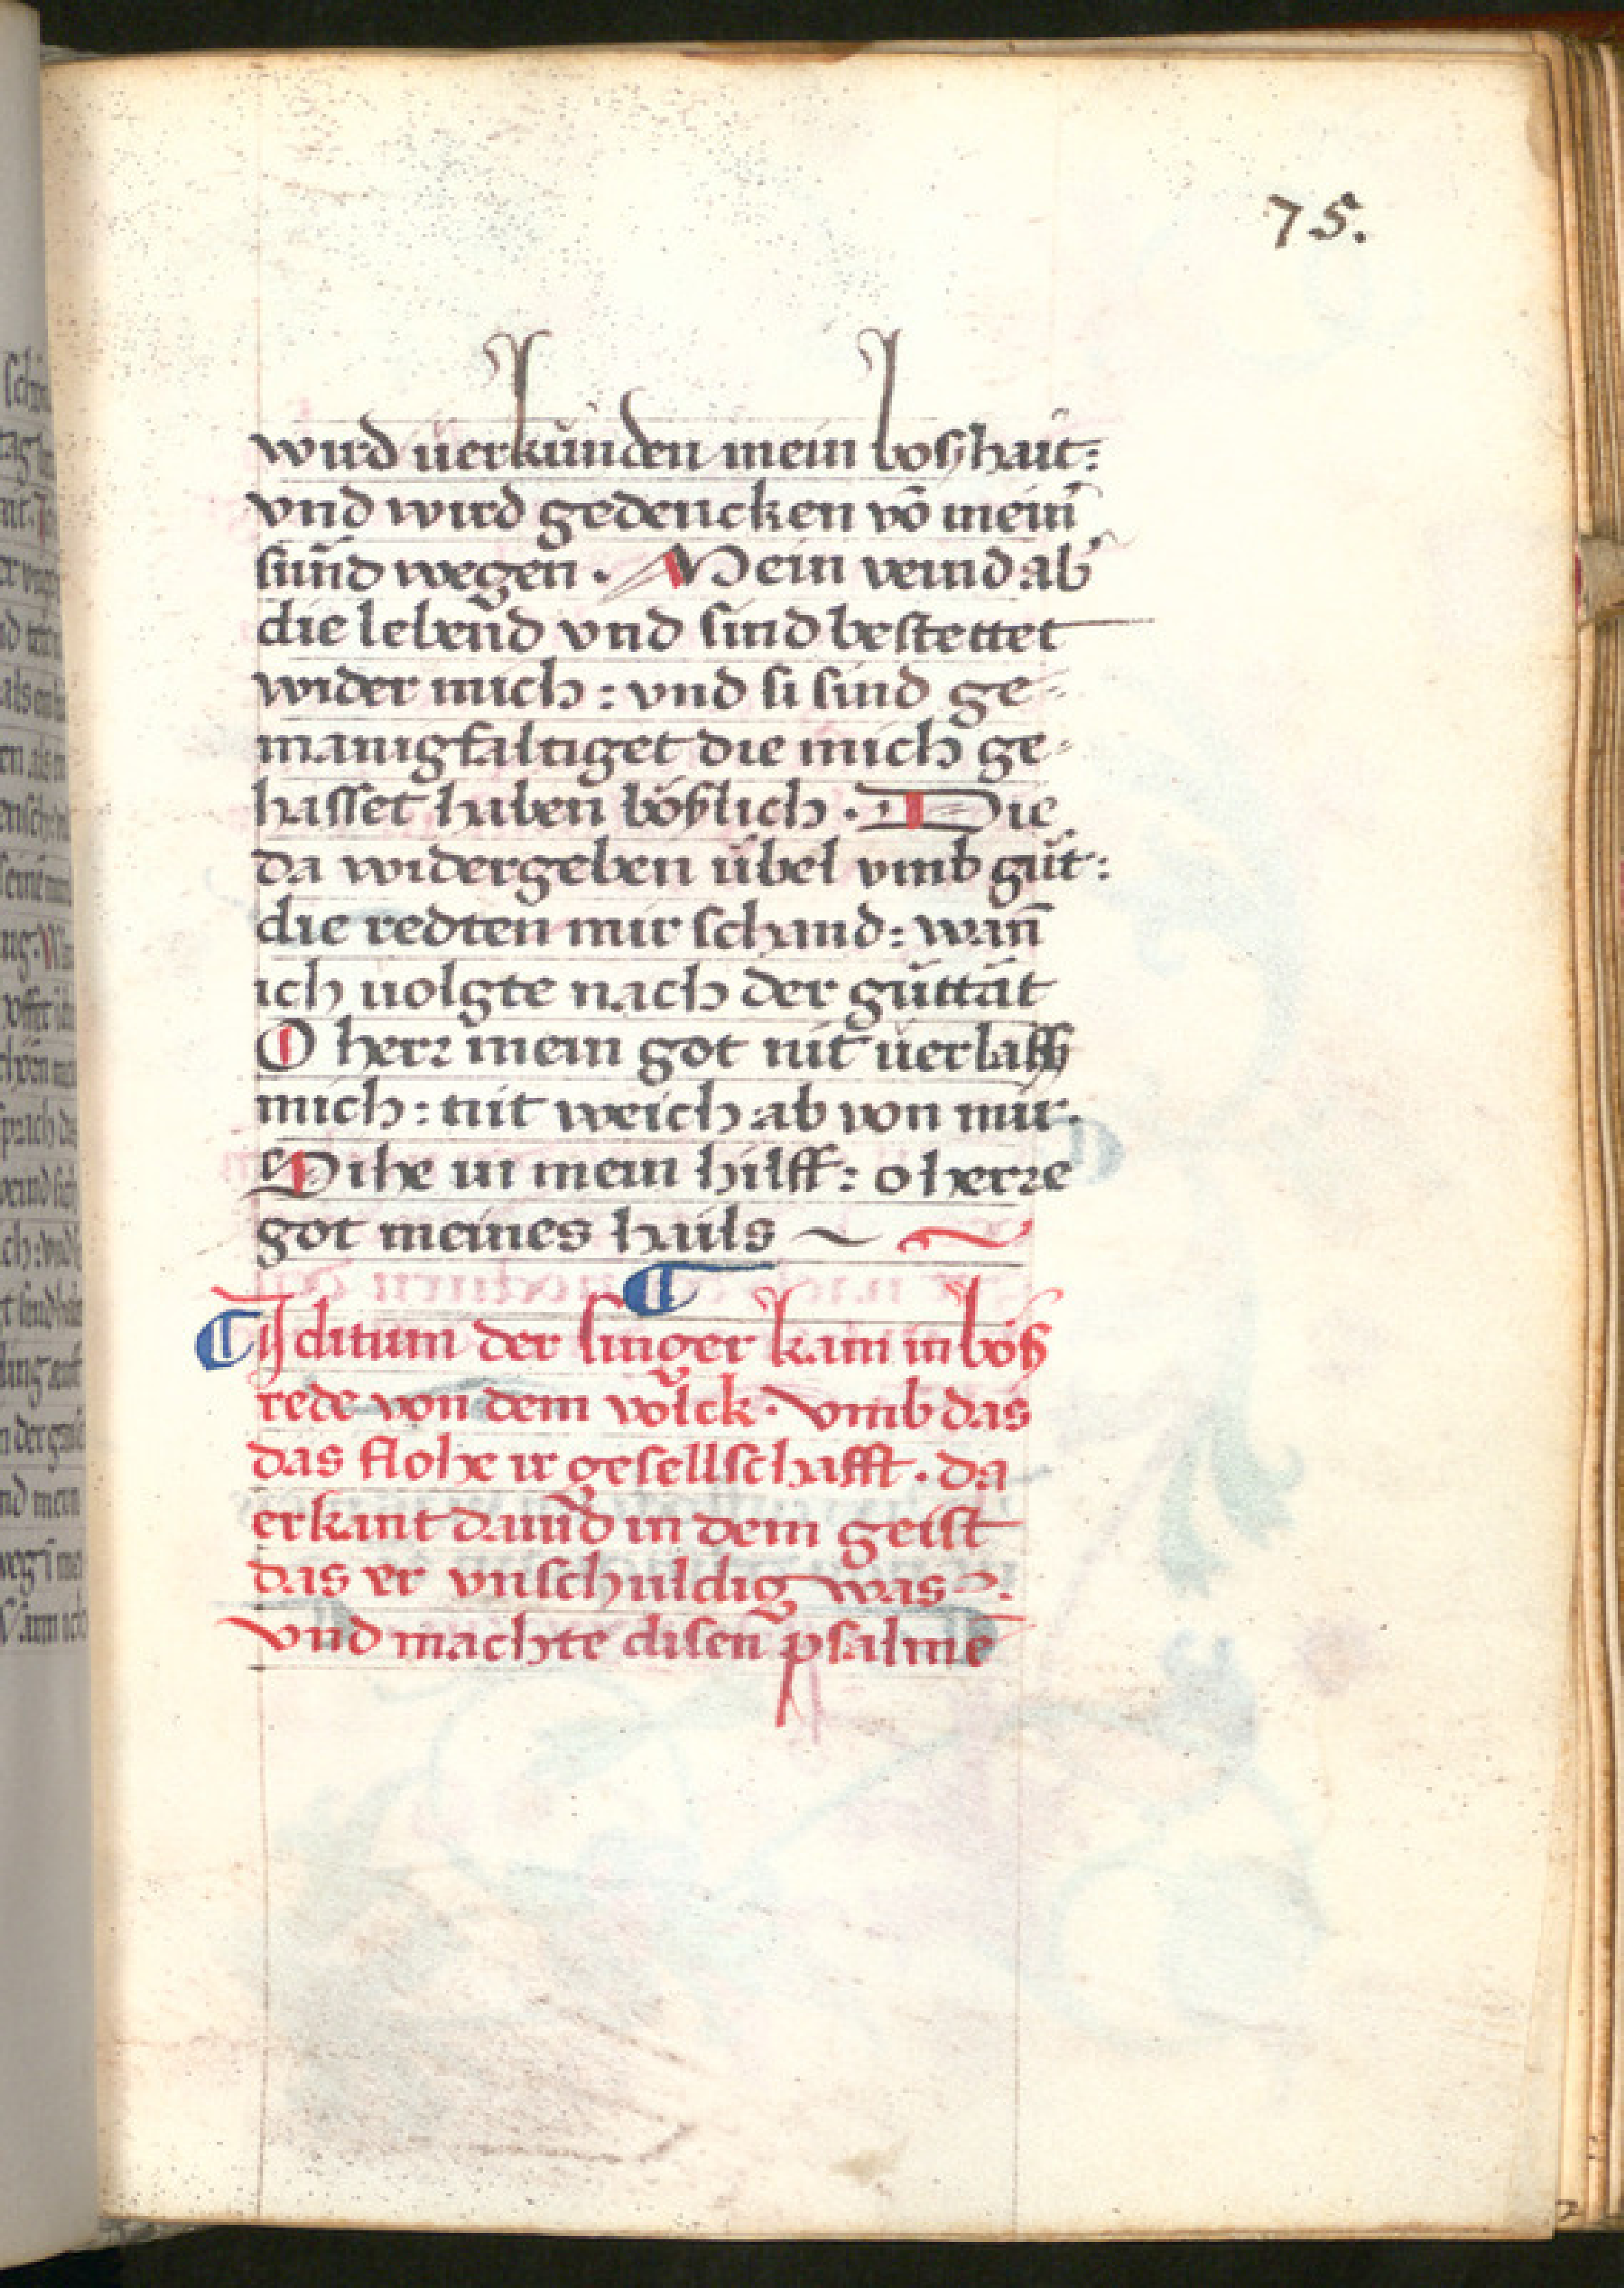 75.
wird üerkünden mein boßhait:
vnd wird gedencken vō mein̄
sünd wegen. Mein veind ab̾
die lebend vnd sind bestettet
wider mich: vnd si sind ge-
manigfaltiget die mich ge-
hasset haben bößlich. Die
da widergeben übel vmb gůt:
die redten mir schand: wan̄
ich uolgte nach der gůttät
O herr mein got nit üerlaß
mich: nit weich ab von mir.
Sihe in mein hilff: o herre
got meines hails
Iditum der singer kam in böß
rede von dem volck. Vmb das
das flohe ir gesellschafft. da
erkant dauid in dem geist
das er vnschuldig was.
vnd machte disen psalme